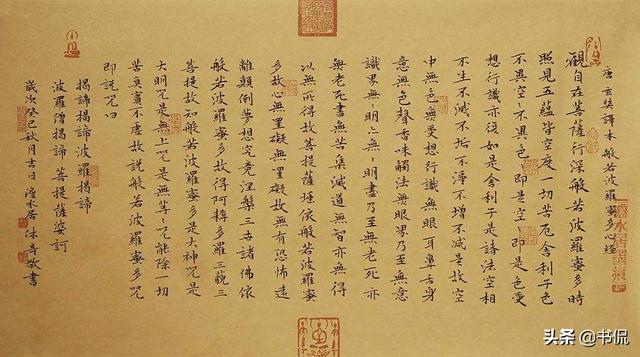 唐玄奘譯本般若波羅蜜多心經
觀自在菩薩行深般若波羅蜜多時
照見五蘊皆空度一切苦厄舍利子色
不異空〻不異色〻即是空〻即是色受
想行識亦復如是舍利子是諸法空相
不生不滅不垢不淨不增不減是故空
中無色無受想行識無眼耳鼻舌身
意無色聲香味觸法無眼界乃至無意
識界無〻明亦無〻明盡乃至無老死亦
無老死盡無苦集滅道無智亦無得
以無所得故菩提薩埵依般若波羅蜜
多故心無罣礙無罣礙故無有恐怖遠
離顛倒夢想究竟涅槃三世諸佛依
般若波羅蜜多故得阿耨多羅三藐三
菩提故知般若波羅蜜多是大神咒是
大明咒是無上咒是無等〻咒能除一切
苦真實不虛故說般若波羅蜜多咒
即說咒曰
揭諦揭諦波羅揭諦
波羅僧揭諦菩提薩婆訶
歲次癸巳秋月吉日水居敬書
头条 @书侃